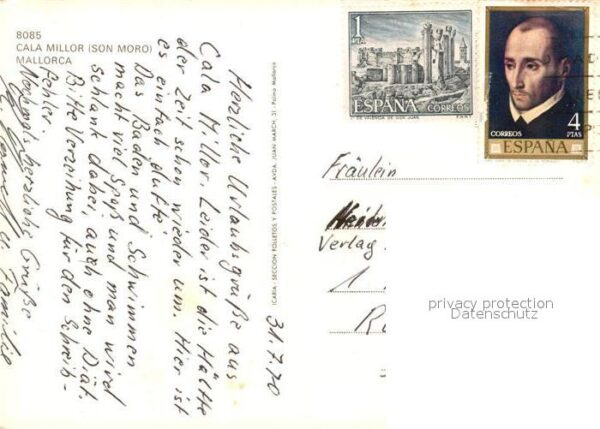 8085
CALA MILLOR (SON MORO)
MALLORCA
31.7.70
Herzliche Urlaubsgrüße aus
Cala Millor. Leider ist die Hälfte
der Zeit schon wieder um. Hier ist
es einfach dufte!
Das Baden und Schwimmen
macht viel Spaß und man wird
schlank dabei, auch ohne Diät.
Bitte Verzeihung für den Schreib-
fehler.
Nochmals herzliche Grüße
Familie
ICARIA - SECCION FOLLETOS Y POSTALES - AVDA. JUAN MARCH, 31 - Palma Mallorca
1 PTA
ESPAÑA
CORREOS
DE VALENCIA DE DON JUAN
4
PTAS
CORREOS
ESPAÑA
Fräulein
Verlag
1
privacy protection
Datenschutz